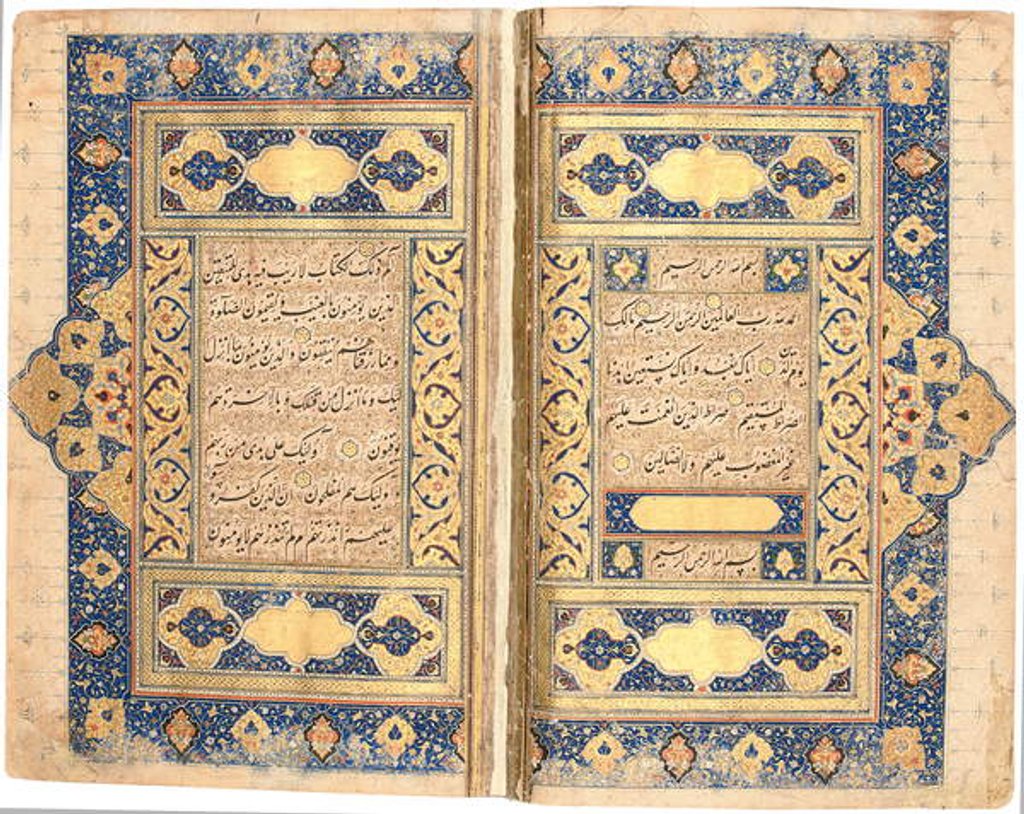 بسم الله الرحمن الرحيم
الحمد لله رب العالمين الرحمن الرحيم مالك
يوم الدين اياك نعبد و اياك نستعين اهدنا
الصراط المستقيم صراط الذين انعمت عليهم
غير المغضوب عليهم ولا الضالين
بسم الله الرحمن الرحيم
الم ذلك الكتاب لا ريب فيه هدى للمتقين
الذين يؤمنون بالغيب و يقيمون الصلوة
و مما رزقناهم ينفقون و الذين يؤمنون بما انزل
اليك و ما انزل من قبلك و بالاخرة هم
يوقنون اولئك على هدى من ربهم
و اولئك هم المفلحون ان الذين كفروا سواء
عليهم ءانذرتهم ام لم تنذرهم لا يؤمنون